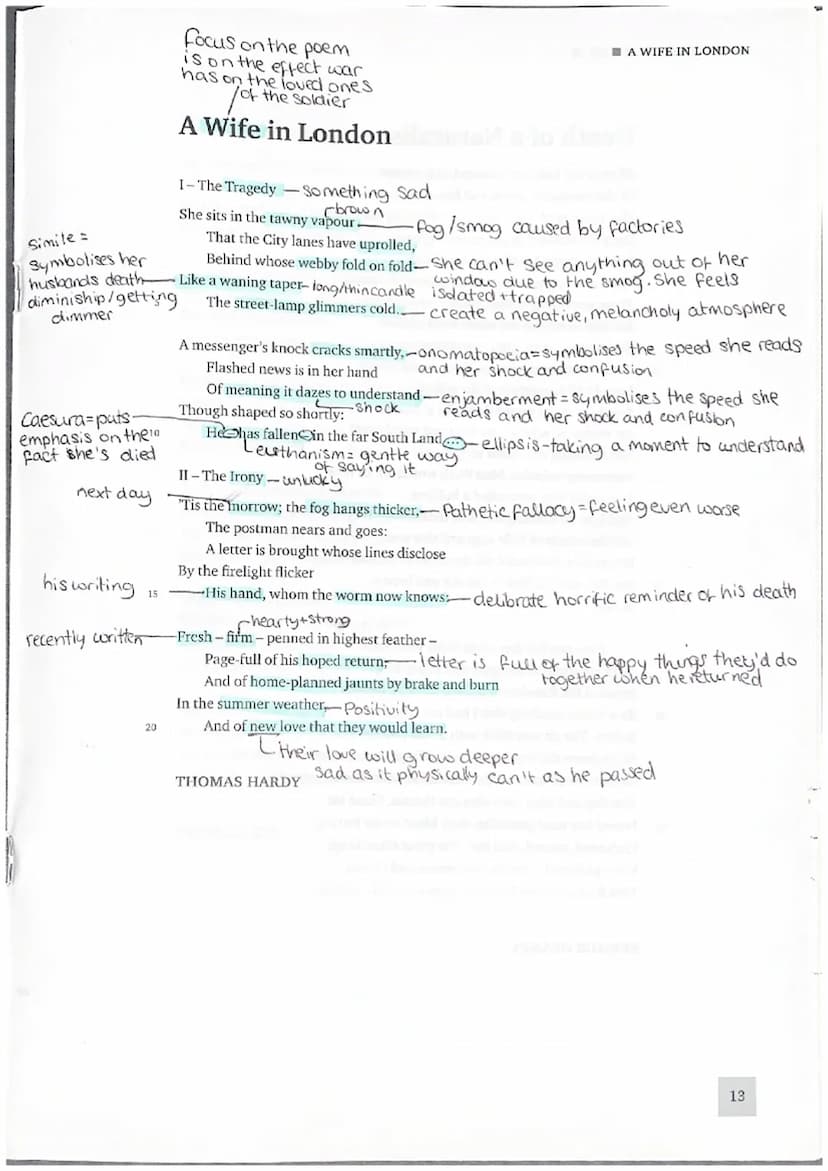 focus on the poem
is on the effect war
has on the loved ones
of the soldier
A WIFE IN LONDON
A Wife in London
I – The Tragedy — something sad
brown
She sits in the tawny vapour — fog/smog caused by factories
That the City lanes have uprolled,
Behind whose webby fold on fold — she can't see anything out of her
window due to the smog. She feels
isolated + trapped
simile =
symbolises her
husbands death
diminiship/getting
dimmer
Like a waning taper – long/thin candle
The street-lamp glimmers cold. — create a negative, melancholy atmosphere
A messenger's knock cracks smartly, — onomatopoeia = symbolises the speed she reads
and her shock and confusion
Flashed news is in her hand
Of meaning it dazes to understand — enjamberment = symbolises the speed she
reads and her shock and confusion
shock
Though shaped so shortly:
Caesura = puts
emphasis on the
fact she's died
10
He – has fallen – in the far South Land ... — ellipsis - taking a moment to understand
eusthanism = gentle way
of saying it
II – The Irony – unlucky
next day
'Tis the morrow; the fog hangs thicker, — Pathetic fallacy = feeling even worse
The postman nears and goes:
A letter is brought whose lines disclose
By the firelight flicker
his writing
15
His hand, whom the worm now knows: — delibrate horrific reminder of his death
hearty + strong
recently written — Fresh – firm – penned in highest feather –
Page-full of his hoped return, — letter is full of the happy things they'd do
together when he returned
And of home-planned jaunts by brake and burn
In the summer weather, — Positivity
20
And of new love that they would learn.
their love will grow deeper
sad as it physically can't as he passed
THOMAS HARDY
13